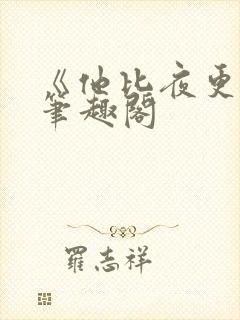 《他比夜更
笔趣阁
罗志祥